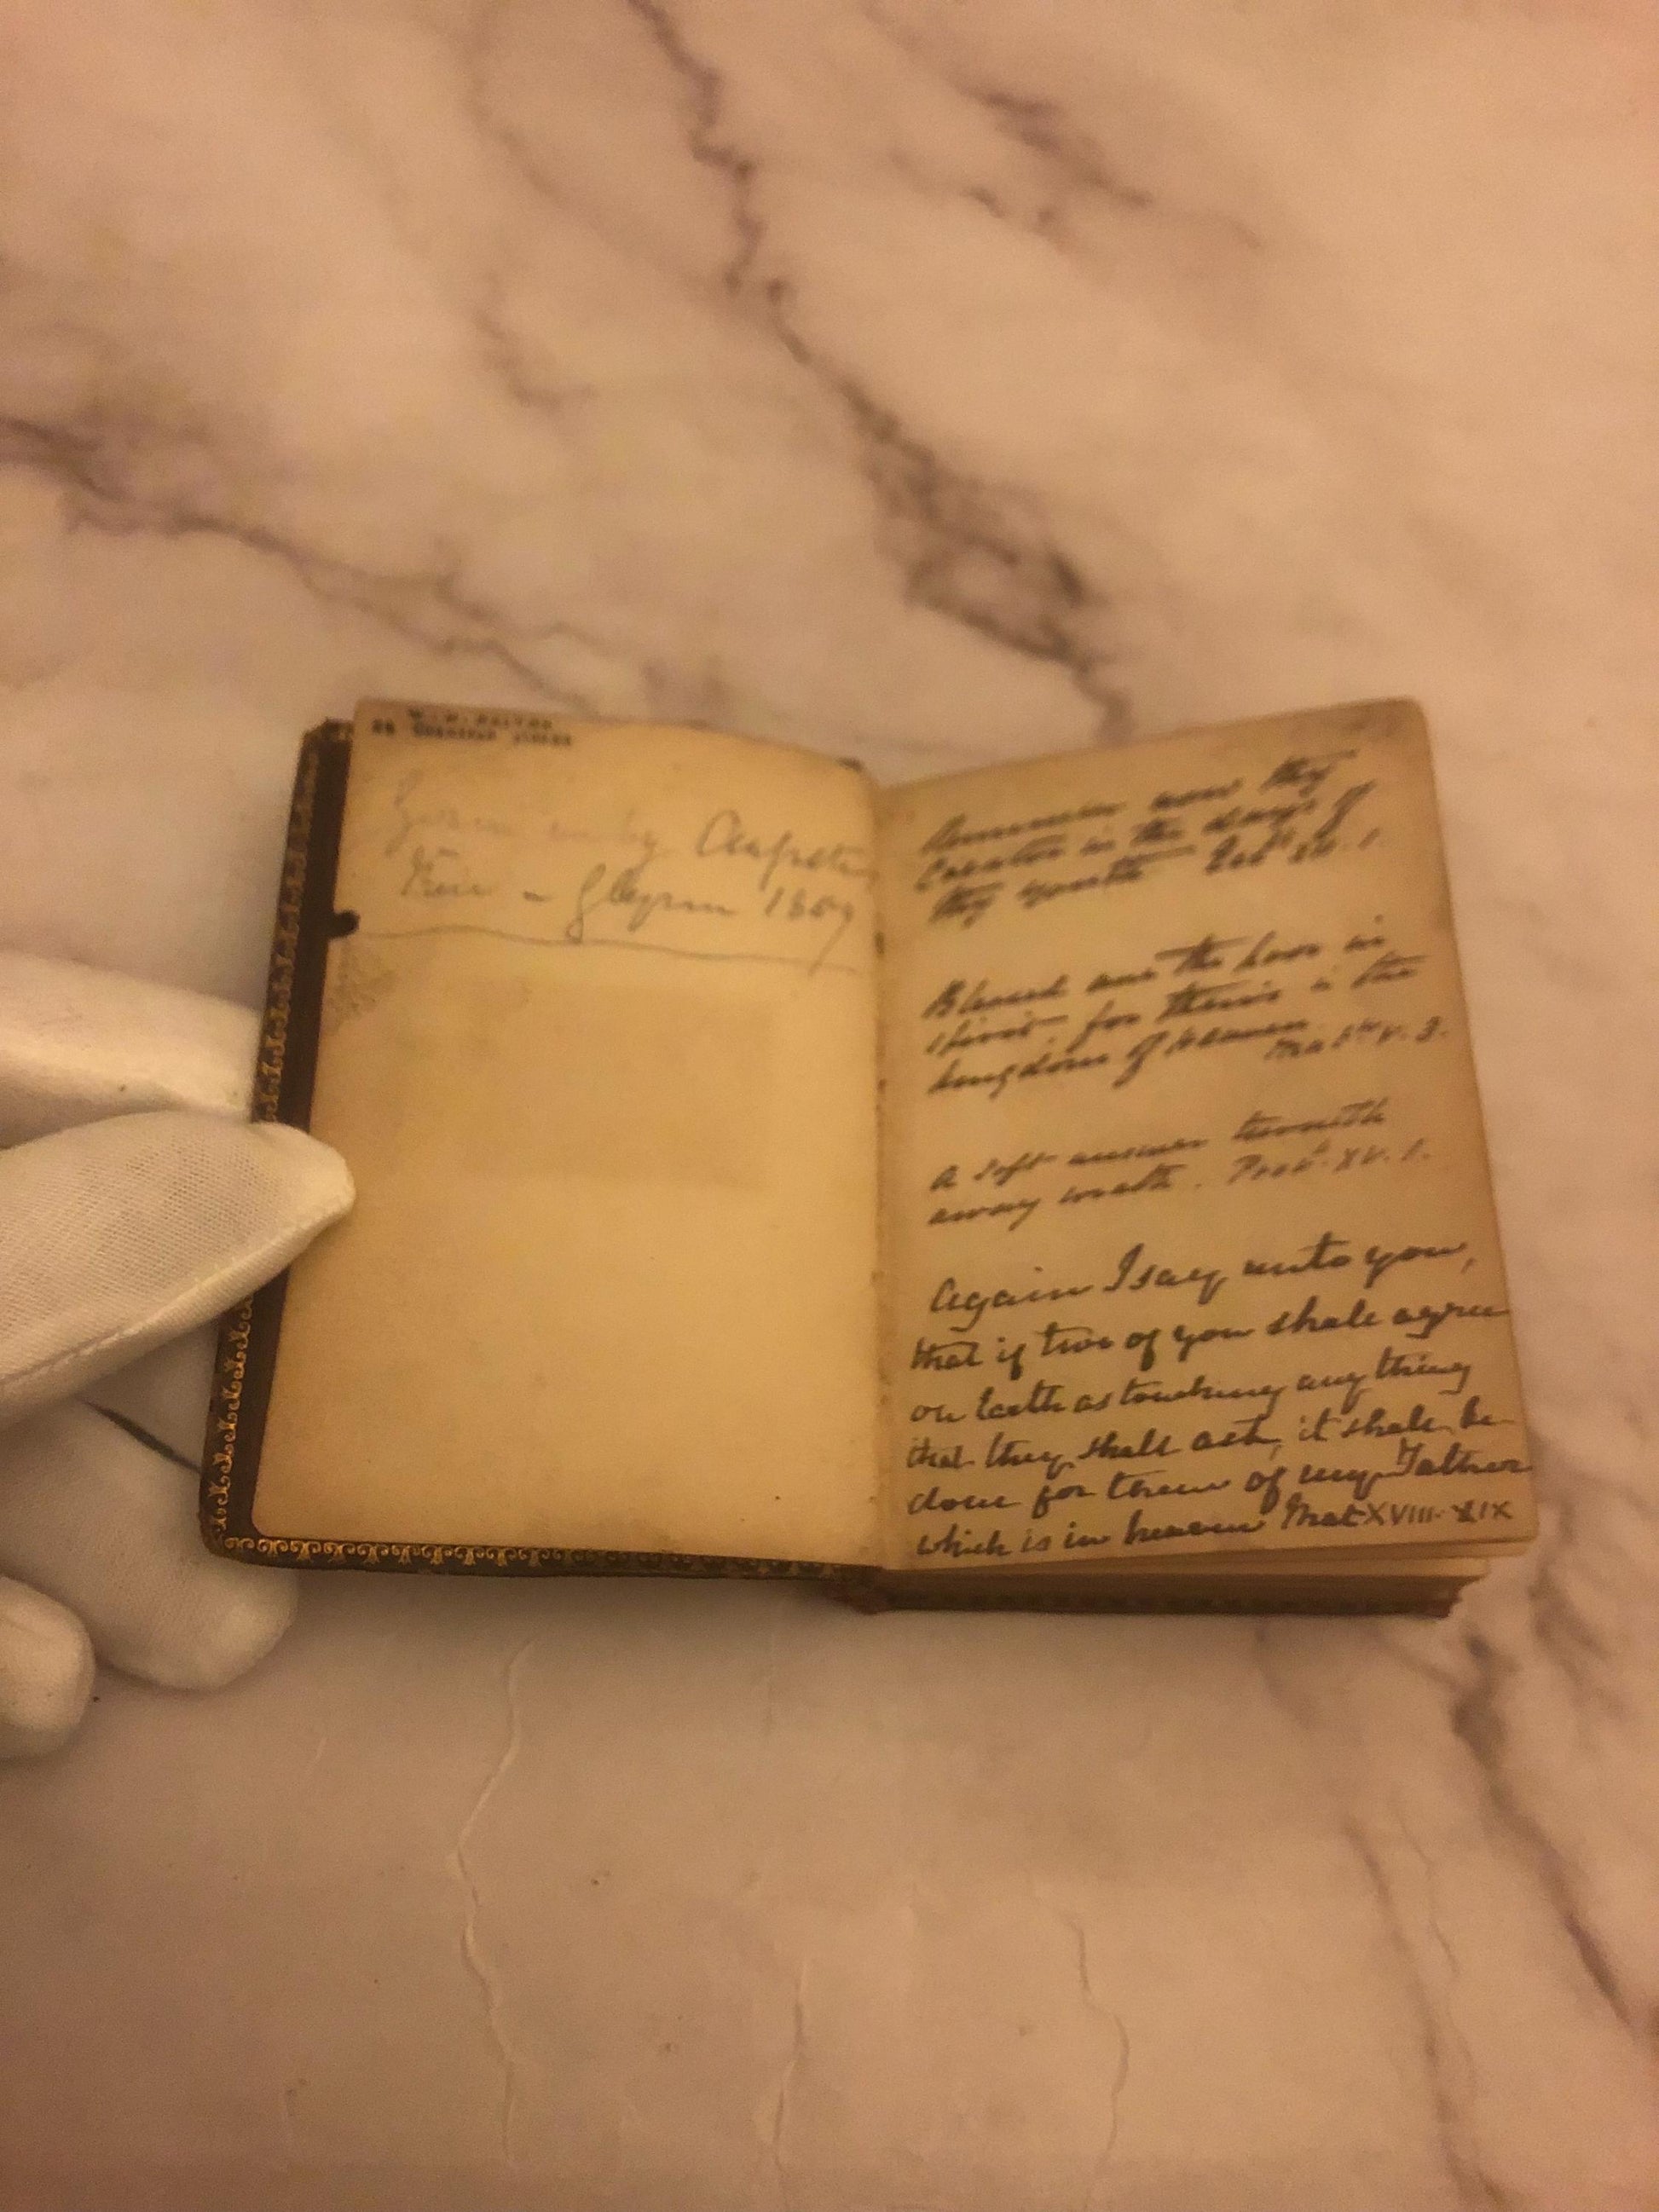 Given me by
1859
Remember now thy
Creator in the days of
thy youth Eccl. XII. 1.
Blessed are the poor in
spirit, for theirs is the
kingdom of Heaven.
Mat. V. 3.
A soft answer turneth
away wrath. Prov. XV. 1.
Again I say unto you,
that if two of you shall agree
on Earth as touching any thing
that they shall ask, it shall be
done for them of my Father
which is in heaven Mat XVIII. XIX